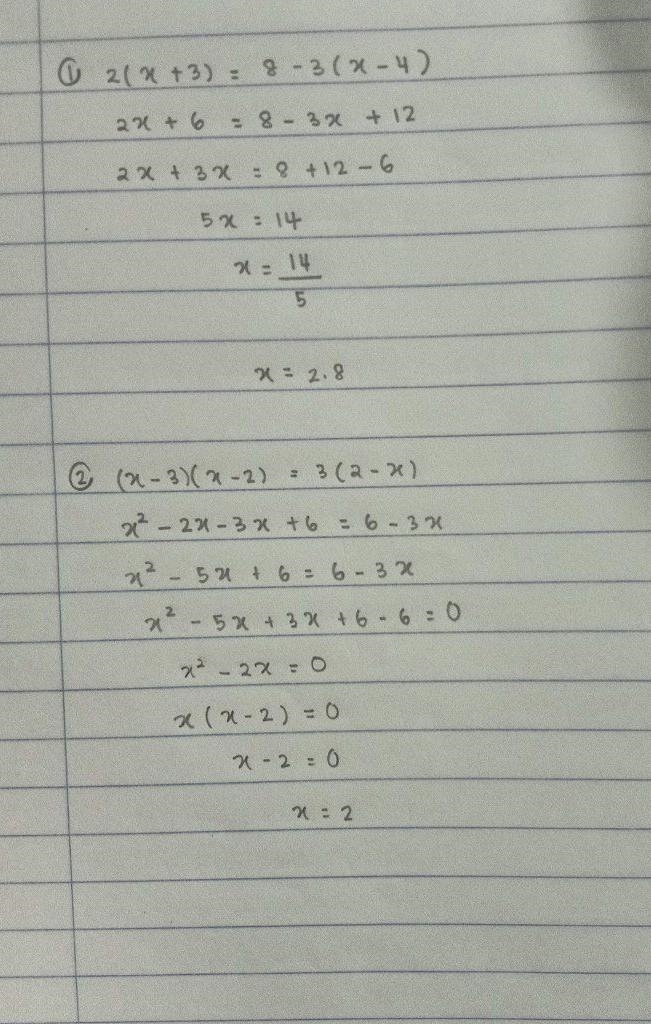 ① 2(x+3) = 8-3(x-4)
2x + 6 = 8 - 3x + 12
2x + 3x = 8 + 12 - 6
5x = 14
x = 14/5
x = 2.8
② (x-3)(x-2) = 3(2-x)
x² - 2x - 3x + 6 = 6 - 3x
x² - 5x + 6 = 6 - 3x
x² - 5x + 3x + 6 - 6 = 0
x² - 2x = 0
x(x-2) = 0
x - 2 = 0
x = 2